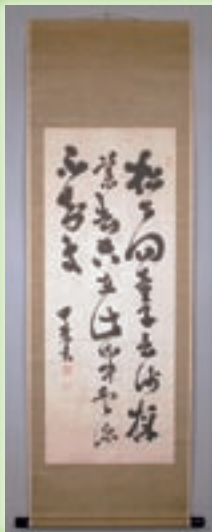 松下問童子言師採
藥去只在此山中雲深
不知處